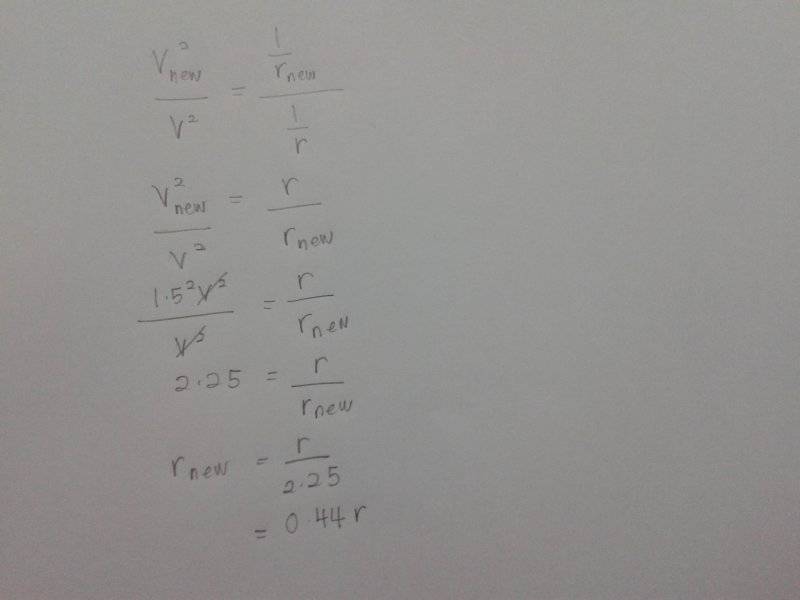 V²new / V² = (1 / rnew) / (1 / r)
V²new / V² = r / rnew
1.5²V² / V² = r / rnew
2.25 = r / rnew
rnew = r / 2.25
= 0.44 r